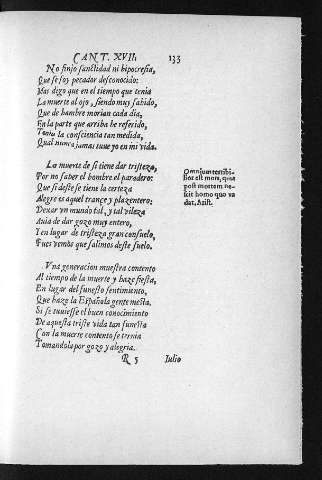 CANT. XVII. 133
No finjo sanctidad ni hipocresia,
Que se soy pecador desconocido:
Mas digo que en el tiempo que tenia
La muerte al ojo, siendo muy sabido,
Que de hambre morian cada dia,
En la parte que arriba he referido,
Tenia la consciencia tan medida,
Qual nunca jamas tuue yo en mi vida.
La muerte de si tiene dar tristeza,
Por no saber el hombre el paradero:
Que si deste se tiene la certeza
Alegre es aquel trance y plazentero:
Dexar vn mundo tal, y tal vileza
Auia de dar gozo muy entero,
Y en lugar de tristeza gran consuelo,
Pues vemos que salimos deste suelo.
Omnium terribilior est mors, quia
post mortem nescit homo quo vadat, Arist.
Vna generacion muestra contento
Al tiempo de la muerte y haze fiesta,
En lugar del funesto sentimiento,
Que haze la Española gente mesta.
Si se tuuiesse el buen conocimiento
De aquesta triste vida tan funesta
Con la muerte contento se trenia
Tomandola por gozo y alegria.
R 5 Iulio